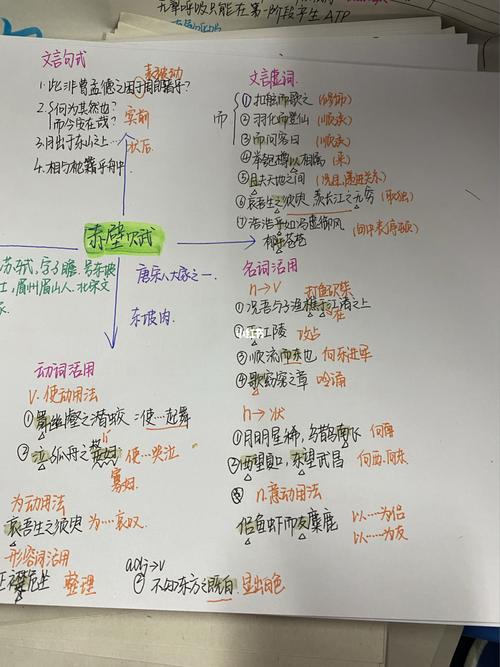 只能在第一阶段产生ATP
文言句式
1.此非曹孟德之困于周郎者乎?
表被动
2.何为其然也?
而今安在哉?
宾前
3.月出于东山之上…
状后
4.相与枕藉乎舟中
赤壁赋
苏轼,字子瞻,号东坡
眉州眉山人,北宋文
唐宋八大家之一.
东坡肉.
文言虚词.
而
①扣舷而歌之(修饰)
②羽化而登仙(顺承)
③而问客曰(顺承)
④举匏樽以相属(来)
⑤且夫天地之间
⑥哀吾生之须臾 羡长江之无穷(取独)
⑦浩浩乎如冯虚御风
名词活用
n→v 打鱼砍柴
①况吾与子渔樵于江渚之上
在
②下江陵 攻占
③顺流而东也 向东进军
④歌窈窕之章 吟诵
n→状
①月明星稀,乌鹊南飞 向南
②西望夏口,东望武昌 向西.向东
n.意动用法
侣鱼虾而友麋鹿
以……为侣
以……为友
动词活用
V.使动用法
①舞幽壑之潜蛟 :使…起舞
②泣孤舟之嫠妇 使…哭泣
寡妇.
为动用法
哀吾生之须臾 为…哀叹.
形容词活用
正襟危坐 整理
adj→v
不知东方之既白 显出白色